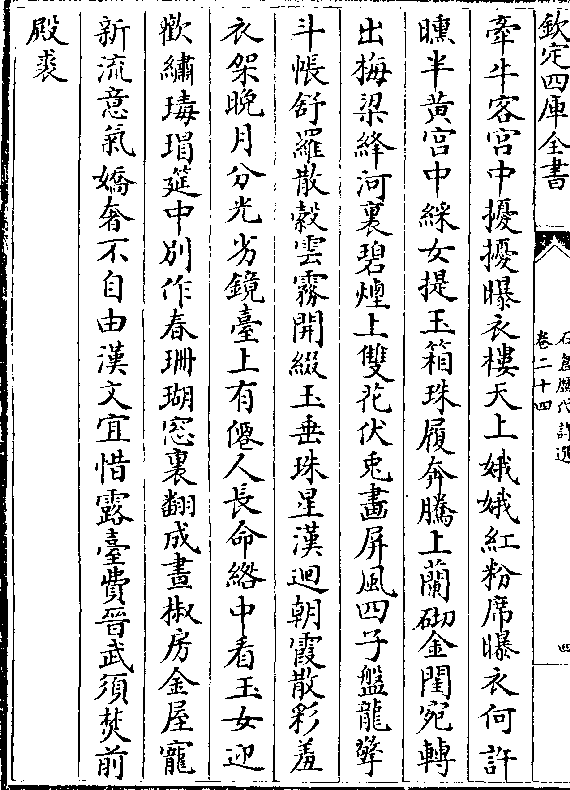 欽定四庫全書
石倉歷代詩選
卷二十四
四
牽牛客宮中擾擾曝衣樓天上娥娥紅粉席曝衣何許
曛半黃宮中綵女提玉箱珠履奔騰上蘭砌金閨宛轉
出梅梁絳河裏碧煙上雙花伏兎畫屏風四子盤龍擎
斗帳舒羅散縠雲霧開綴玉垂珠星漢迴朝霞散彩羞
衣架晚月分光劣鏡臺上有僊人長命綹中看玉女迎
歡繡瑇瑁筵中別作春珊瑚窓裏翻成晝椒房金屋寵
新流意氣嬌奢不自由漢文宜惜露臺費晉武須焚前
殿裘